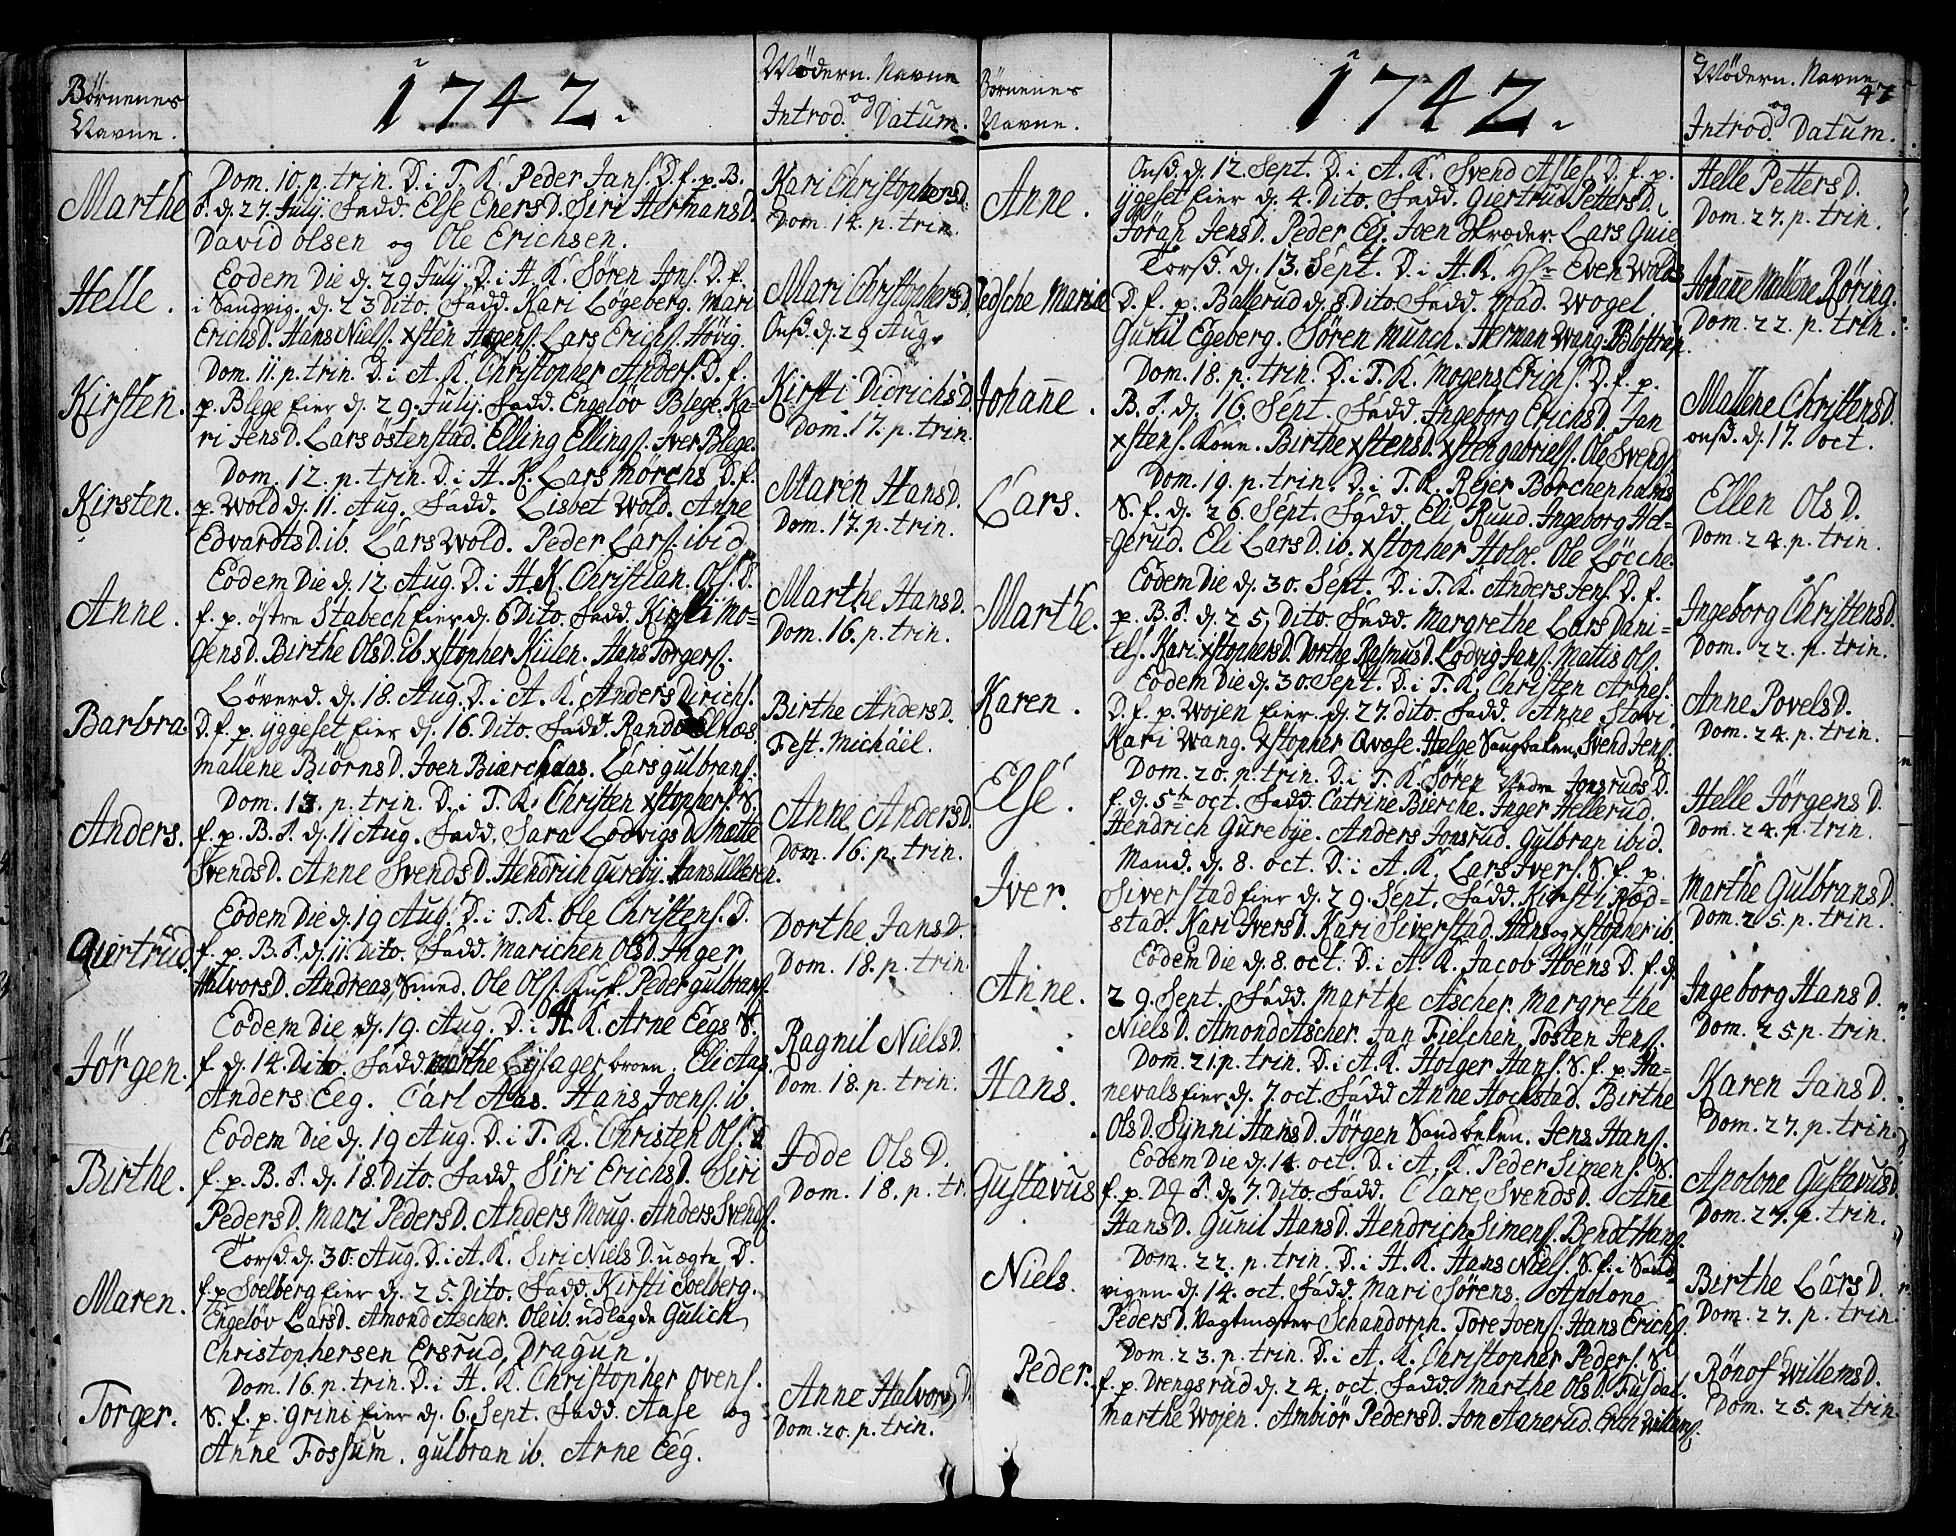 Børnenes
Navne.
1742.
Mødern. Navne
og
Introd. Datum.
Marthe
Dom. 10. p. trin. D. i T. K. Peder Jans. D. f. p. B.
S. d. 27 July. Fadd. Else EnersD. Siri HermansD.
David Olsen og Ole Erichsen.
Kari ChristophersD.
Dom. 14. p. trin.
Helle.
Eodem Die d. 29 July. D. i H. K. Søren Jons. D. f.
i Sandvig. d. 23 Dito. Fadd. Kari Løgeberg. Mari
ErichsD. Hans Niels. xsten Hogens. Lars Erichs. Høvig.
Mari ChristophersD.
Onsd. d. 29 Aug.
Kirsten.
Dom. 11. p. trin. D. i A. K. Christopher Anders. D. f.
p. Blege Eier d. 29. July. Fadd. Engeløv Blege. Ka=
ri JensD. Lars østenstad. Elling Ellings. Iver Blege.
Kirsti DidrichsD
Dom. 17. p. trin.
Kirsten.
Dom. 12. p. trin. D. i H. K. Lars Mørchs D. f.
p. Wold d. 11. Aug. Fadd. Lisbet Wold. Anne
EdvardtsD. ib. Lars Wold. Peder Lars. ibid.
Maren HansD.
Dom. 17. p. trin.
Anne.
Eodem Die d. 12. Aug. D. i H. K. Christian. Ols. D.
f. p. østre Stabech Eier d. 6 Dito. Fadd. Kirsti Mo=
gensD. Birthe OlsD. Eb. xstopher Kiilen. Hans Torgers.
Marthe HansD.
Dom. 16. p. trin.
Barbra.
Løverd. d. 18. Aug. D. i A. K. Anders Dirichs.
D. f. p. yggeset Eier d. 16. Dito. Fadd. Randi Elnæs.
Mallene BiørnsD. Joen Biærchaas. Lars gulbrans.
Birthe AndersD.
Fest. Michäel.
Anders.
Dom. 13. p. trin. D. i T. K. Christen xstophers. S.
f. p. B. S. d. 11 Aug. Fadd. Sara LodvigsD. Matte
SvendsD. Anne SvendsD. Hendrich Gureby. Hans Ulleren.
Anne AndersD.
Dom. 16. p. trin.
Giertrud.
Eodem Die d. 19 Aug. D. i T. K. Ole Christens. D.
f. p. B. S. d. 11. Dito. Fadd. Marichen OlsD. Inger
HalvorsD. Andreas Smed. Ole Ols. Kusk. Peder gulbrans.
Dorthe JansD.
Dom. 18. p. trin.
Jørgen.
Eodem Die d. 19. Aug. D. i H. K. Arne Eegs S.
f. d. 14. Dito. Fadd. Marthe Lysagerbroen. Eli Aas.
Anders Eeg. Carl Aas. Hans Joens. ib.
Ragnil NielsD.
Dom 18. p. trin.
Birthe.
Eodem Die d. 19 Aug. D. i T. K. Christen Ols. D.
f. p. B. S. d. 18. Dito. Fadd. Siri ErichsD. Siri
PedersD. Mari PedersD. Anders Moug. Anders Svends.
Idde OlsD.
Dom. 18. p. tr.
Maren.
Torsd. d. 30. Aug. D. i A. K. Siri NielsD. uægte D.
f. p. Soelberg Eier d. 25. Dito. Fadd. Kirsti Soelberg.
Engeløv LarsD. Amond Ascher. Ole ib. udlagde Gulich
Christophersen Ersrud, Dragun.
Torger.
Dom. 16. p. trin. D. i H. K. Christopher Ovens.
S. f. p. Grini Eier d. 6. Sept. Fadd. Aase og
Anne Fossum. gulbran ib. Arne Eeg.
Anne HalvorsD.
Dom. 20. p. trin.
Børnenes
Navne.
1742.
Mødern. Navne
47
og
Introd. Datum.
Anne.
Onsd. d. 12 Sept. D. i A. K. Svend Aslef. D. f. p.
yggeset Eier d. 4. Dito. Fadd. Giertrud PettersD.
Jøran JensD. Peder Eeg. Joen Skræder. Lars Guie.
Helle PettersD.
Dom. 27. p. trin.
Jedsche Maria
Torsd. d. 13. Sept. D. i H. K. Hr. Even Wolds
D. f. p. Ballerud d. 8. Dito. Fadd. Mad. Wogel.
Gunil Egeberg. Søren Munch. Herman Wang.
Johanne Mallene Røring.
Dom. 22. p. trin.
Johanne.
Dom. 18. p. trin. D. i T. K. Mogens Erichs. D. f. p.
B. S. d. 16. Sept. Fadd. Ingeborg ErichsD. Jan
xstens. Kone. Birthe xstensD. xsten gabriels. Ole Svends.
Mallene ChristensD.
onsd. d. 17. oct.
Lars.
Dom. 19. p. trin. D. i T. K. Rejer Borchenholms
S. f. d. 26. Sept. Fadd. Eli Ruud. Ingeborg Hel=
=gerud. Eli LarsD. ib. xstopher Holoe. Ole Løcche.
Ellen OlsD.
Dom. 24. p. trin.
Marthe.
Eodem Die d. 30. Sept. D. i T. K. Anders Jens. D. f.
p. B. S. d. 25, Dito. Fadd. Margrethe Lars Dani=
els. Kari xstophersD. Dorthe RasmusD. Lodvig Jans. Mattis Ols.
Ingeborg ChristensD.
Dom. 22. p. trin.
Karen.
Eodem Die d. 30. Sept. D. i T. K. Christen Arnes.
D. f. p. Wojen Eier. d. 27. dito. Fadd. Anne Stovi.
Kari Wang. xstopher Qvase. Helge Saugbaken. Svend Jens.
Anne PovelsD.
Dom. 24. p. trin.
Else.
Dom. 20. p. trin. D. i T. K. Søren Nedre Jonsruds D.
f. d. 5te oct. Fadd. Catrine Bierche. Inger Hellerud.
Hendrich Gurebye. Anders Jonsrud. Gulbran ibid.
Helle JørgensD.
Dom. 24. p. trin.
Iver.
Mand. d. 8. oct. D. i A. K. Lars Ivers. S. f. p.
Siverstad Eier d. 29. Sept. Fadd. Kirsti Rød=
stad. Kari IversD. Kari Siverstad. Hans og xstopher ib.
Marthe GulbransD.
Dom. 25. p. trin.
Anne.
Eodem Die d. 8. oct. D. i A. K. Jacob Høens D. f. d.
29. Sept. Fadd. Marthe Ascher. Margrethe
NielsD. Amond Ascher. Jan Fielchen. Tosten Jens.
Ingeborg HansD.
Dom. 25. p. trin.
Hans.
Dom. 21. p. trin. D. i A. K. Holger Hans. S. f. p. Ha=
nevals Eier d. 7. oct. Fadd Anne Hochstad. Birthe
OlsD. Synni HansD. Jørgen Sandbeken. Jens Hans.
Karen JansD.
Dom. 27. p. trin.
Gustavus
Eodem Die d. 14. oct. D. i A. K. Peder Simens. S.
f. p. S. d. 7. Dito. Fadd. Clare SvendsD. Anne
HansD. Gunil HansD. Hendrich Simens. Bendt Hans.
Apolone GustavusD.
Dom. 27. p. trin.
Niels.
Dom. 22. p. trin. D. i H. K. Hans Niels. S. f. i Sand=
vigen d. 14. oct. Fadd. Mari Sørens. Apolone
PedersD. Vagtmæster Schandorph. Tore Joens. Hans Erichs.
Birthe LarsD.
Dom. 27. p. trin.
Peder.
Dom. 23. p. trin. D. i A. K. Christopher Peders. S.
f. p. Drengsrud d. 24. oct. Fadd. Marthe OlsD. Fusdal.
Marthe Wojen. Ambiør PedersD. Jon Aanerud. Erich Willems.
Rönof WillemsD.
Dom. 25. p. trin.